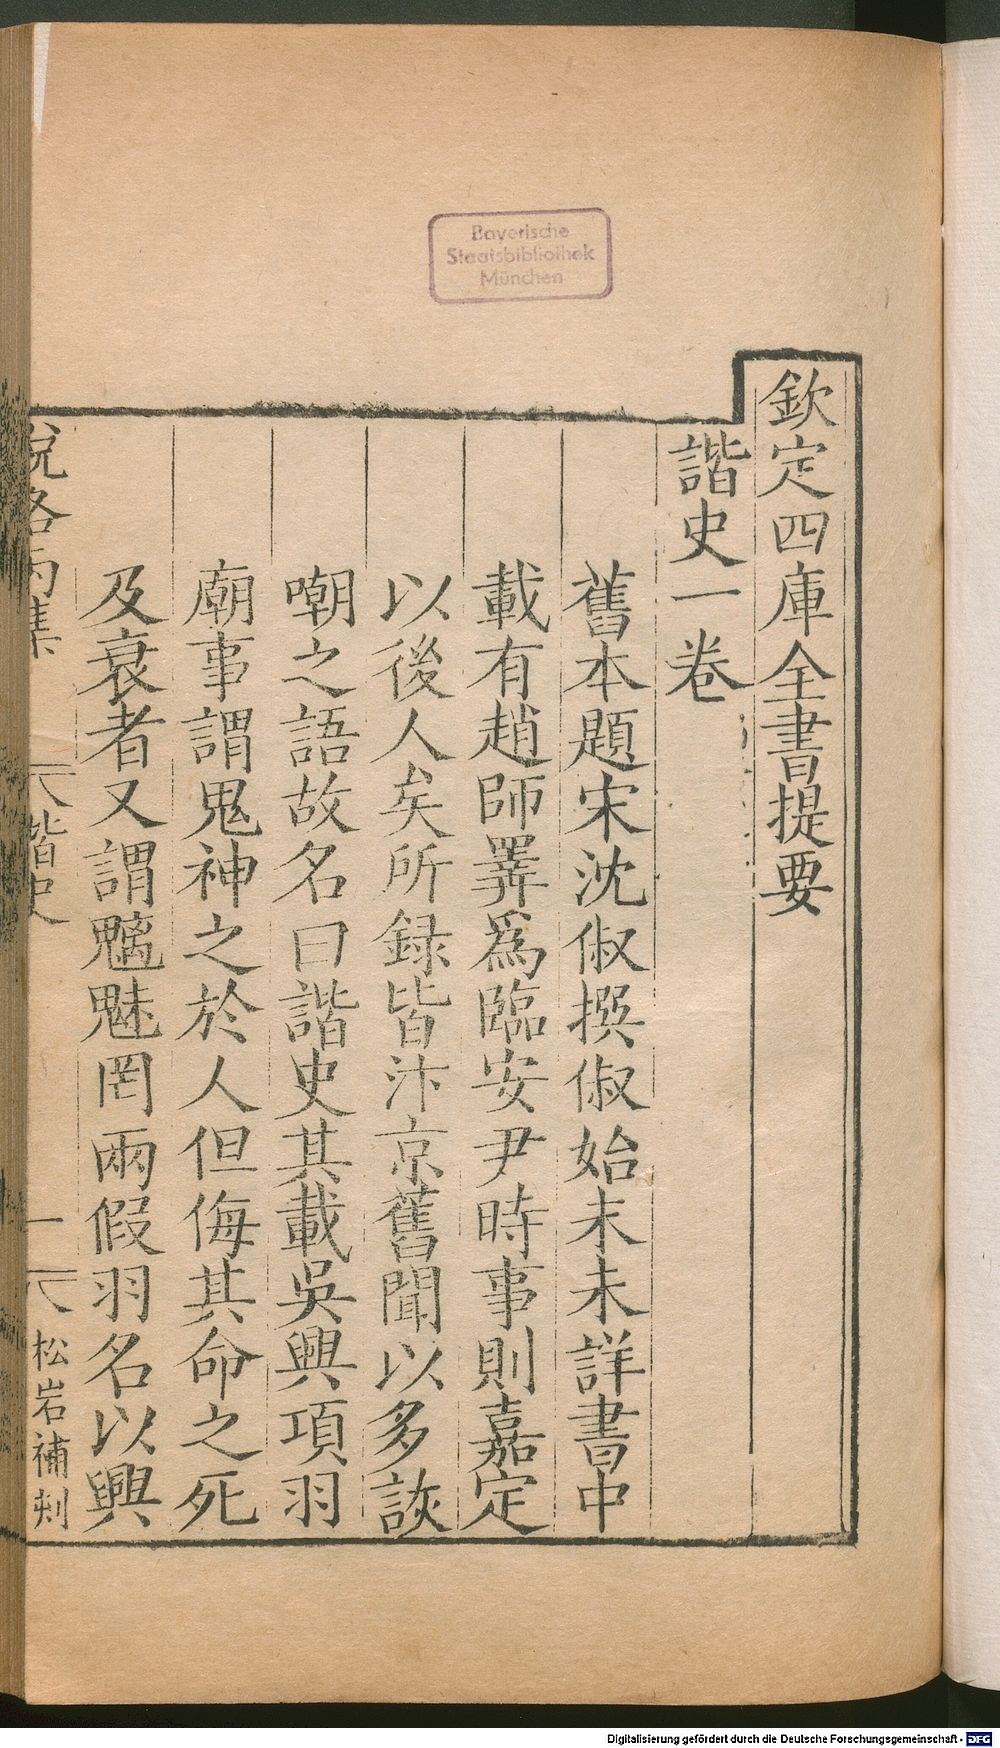 Bayerische
Staatsbibliothek
München
欽定四庫全書提要
諧史一卷
舊本題宋沈俶撰俶始末未詳書中
載有趙師𢍰爲臨安尹時事則嘉定
以後人矣所録皆汴京舊聞以多詼
嘲之語故名曰諧史其載吳興項羽
廟事謂鬼神之於人但侮其命之死
及衰者又謂魑魅罔兩假羽名以興
說各丙集 諧史 一 松岩補刾
Digitalisierung gefördert durch die Deutsche Forschungsgemeinschaft - DFG